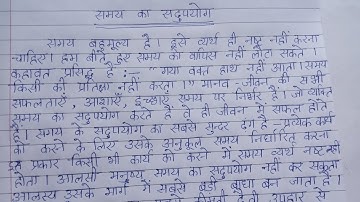 समय का सदुपयोग
समय बहुमूल्य है। इसे व्यर्थ ही नष्ट नहीं करना
चाहिए। हम बीते हुए समय को वापिस नहीं लौटा सकते।
कहावत प्रसिद्ध है :— "गया वक्त हाथ नहीं आता।समय
किसी की प्रतिक्षा नहीं करता।" मानव जीवन की सभी
सफलताएँ, आशाएँ, इच्छाएँ समय पर निर्भर हैं। जो व्यक्ति
समय का सदुपयोग करते हैं वे ही जीवन में सफल होते
हैं। समय के सदुपयोग का सबसे सुन्दर ढंग है –प्रत्येक कार्य
को करने के लिए उसके अनुकूल समय निर्धारित करना
प्रकार किसी भी कार्य को करने में समय व्यर्थ नष्ट नहीं
होता। आलसी मनुष्य समय का सदुपयोग नहीं कर सकता
आलस्य उसके मार्ग में सबसे बड़ी बाधा बन जाता है।
देवी उपहार से